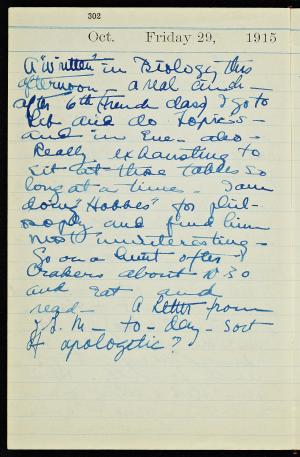 302
Oct. Friday 29, 1915
A "written" in Biology this
afternoon - a real cinch -
after 6th (French class) I go to
Lib and do topics -
and in Eve - also -
Really exhausting to
sit at those tables so
long at a time. I am
doing "Hobbes" for phil-
osophy and find him
most uninteresting -
Go on a hunt often
Crakers about 10.30
and eat and
read - A letter from
J. M - to - day - sort
of apologetic?